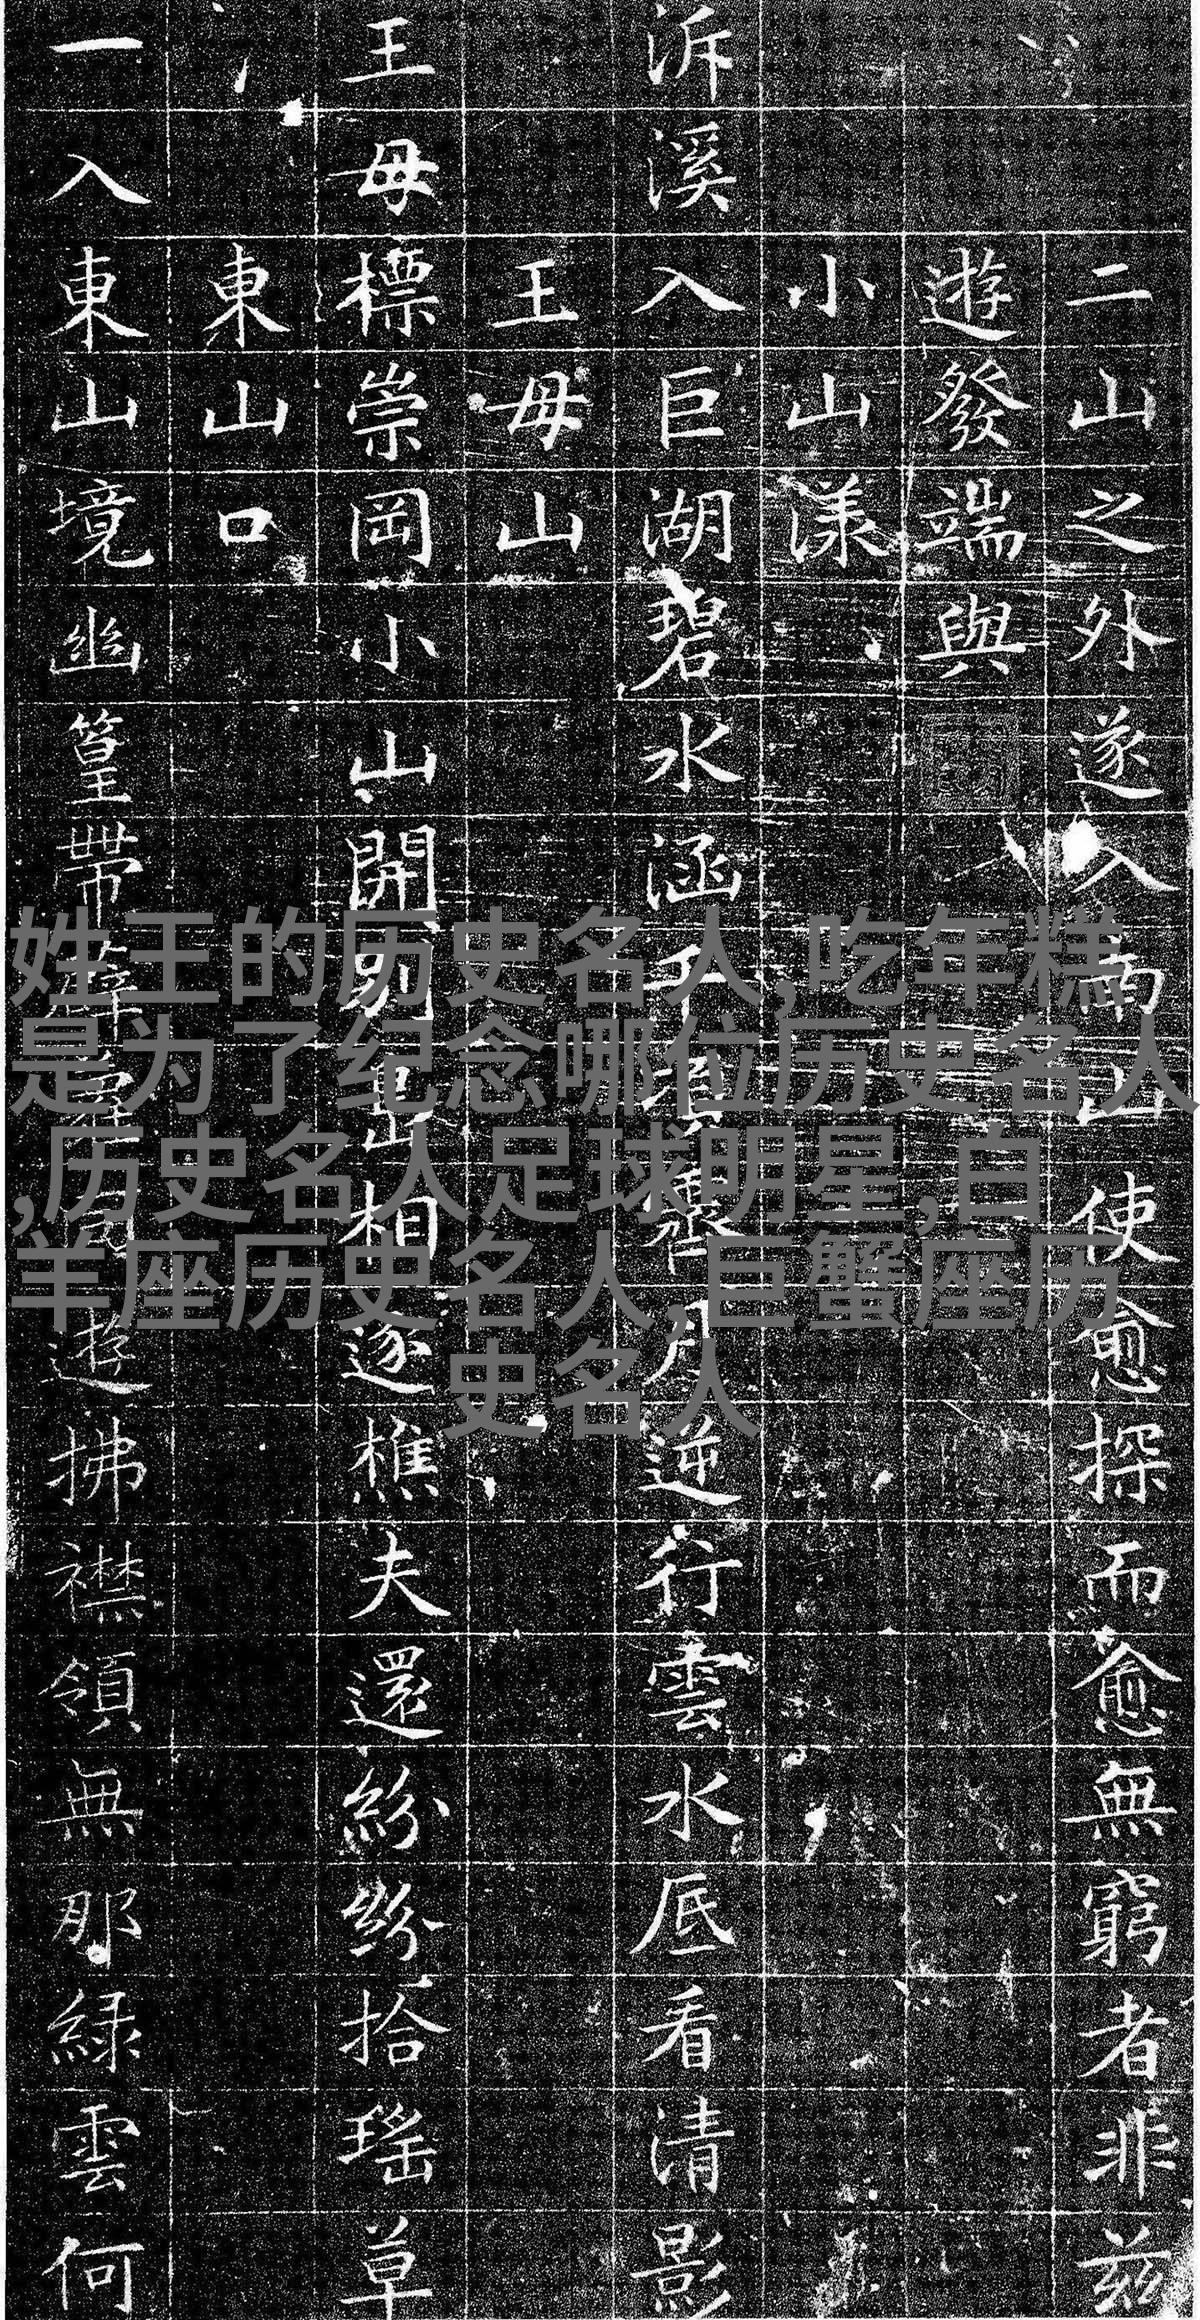 二山之外遂入南山使愈探而愈無窮者非茲
遊發端與
小山漾
泝溪入巨湖碧水涵千頃霽月逆行雲水底看清影
王母山
王母標崇岡小山開別相逐樵夫還紛紛拾瑤草
東山口
一入東山境幽篁帶薜遊拂襟領無那綠雲何
姓王的历史名人,吃年糕
是为了纪念哪位历史名人
,历史名人足球明星,白
羊座历史名人,巨蟹座历
史名人